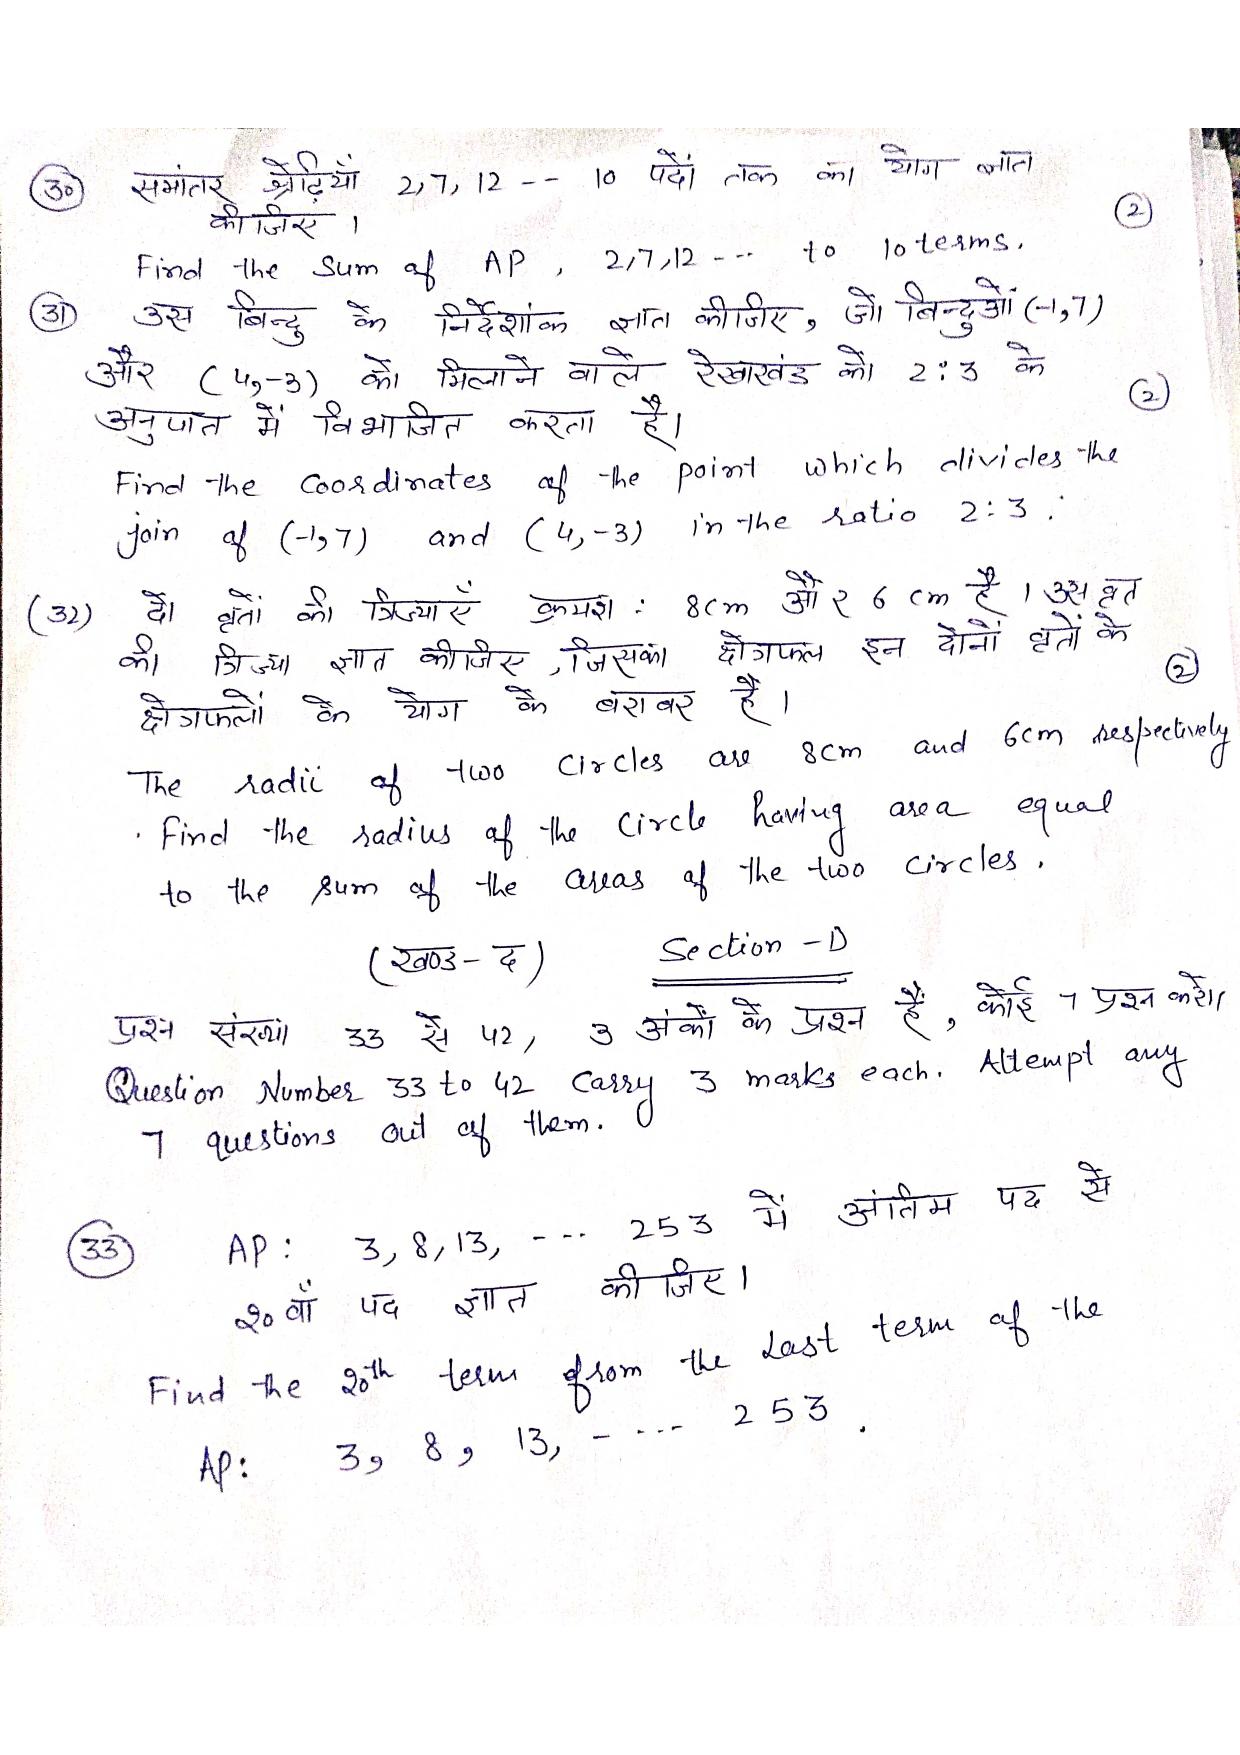 (30) समांतर श्रेढ़ियाँ 2,7,12 -- 10 पदों तक का योग ज्ञात
कीजिए । (2)
Find the sum of AP, 2,7,12 --- to 10 terms.
(31) उस बिन्दु के निर्देशांक ज्ञात कीजिए, जो बिन्दुओं (-1,7)
और (4,-3) को मिलाने वाले रेखाखंड को 2:3 के
अनुपात में विभाजित करता है। (2)
Find the coordinates of the point which divides the
join of (-1,7) and (4,-3) in the ratio 2:3.
(32) दो वृतों की त्रिज्याएँ क्रमश: 8cm और 6 cm है । उस वृत
की त्रिज्या ज्ञात कीजिए, जिसका क्षेत्रफल इन दोनों वृतों के
क्षेत्रफलों के योग के बराबर है । (2)
The radii of two circles are 8cm and 6cm respectively
. Find the radius of the circle having area equal
to the sum of the areas of the two circles.
(खण्ड - द) Section - D
प्रश्न संख्या 33 से 42, 3 अंकों के प्रश्न हैं, कोई 7 प्रश्न करो।
Question Number 33 to 42 carry 3 marks each. Attempt any
7 questions out of them.
(33) AP: 3, 8, 13, --- 253 में अंतिम पद से
20 वाँ पद ज्ञात कीजिए ।
Find the 20th term from the last term of the
AP: 3, 8, 13, - --- 253.